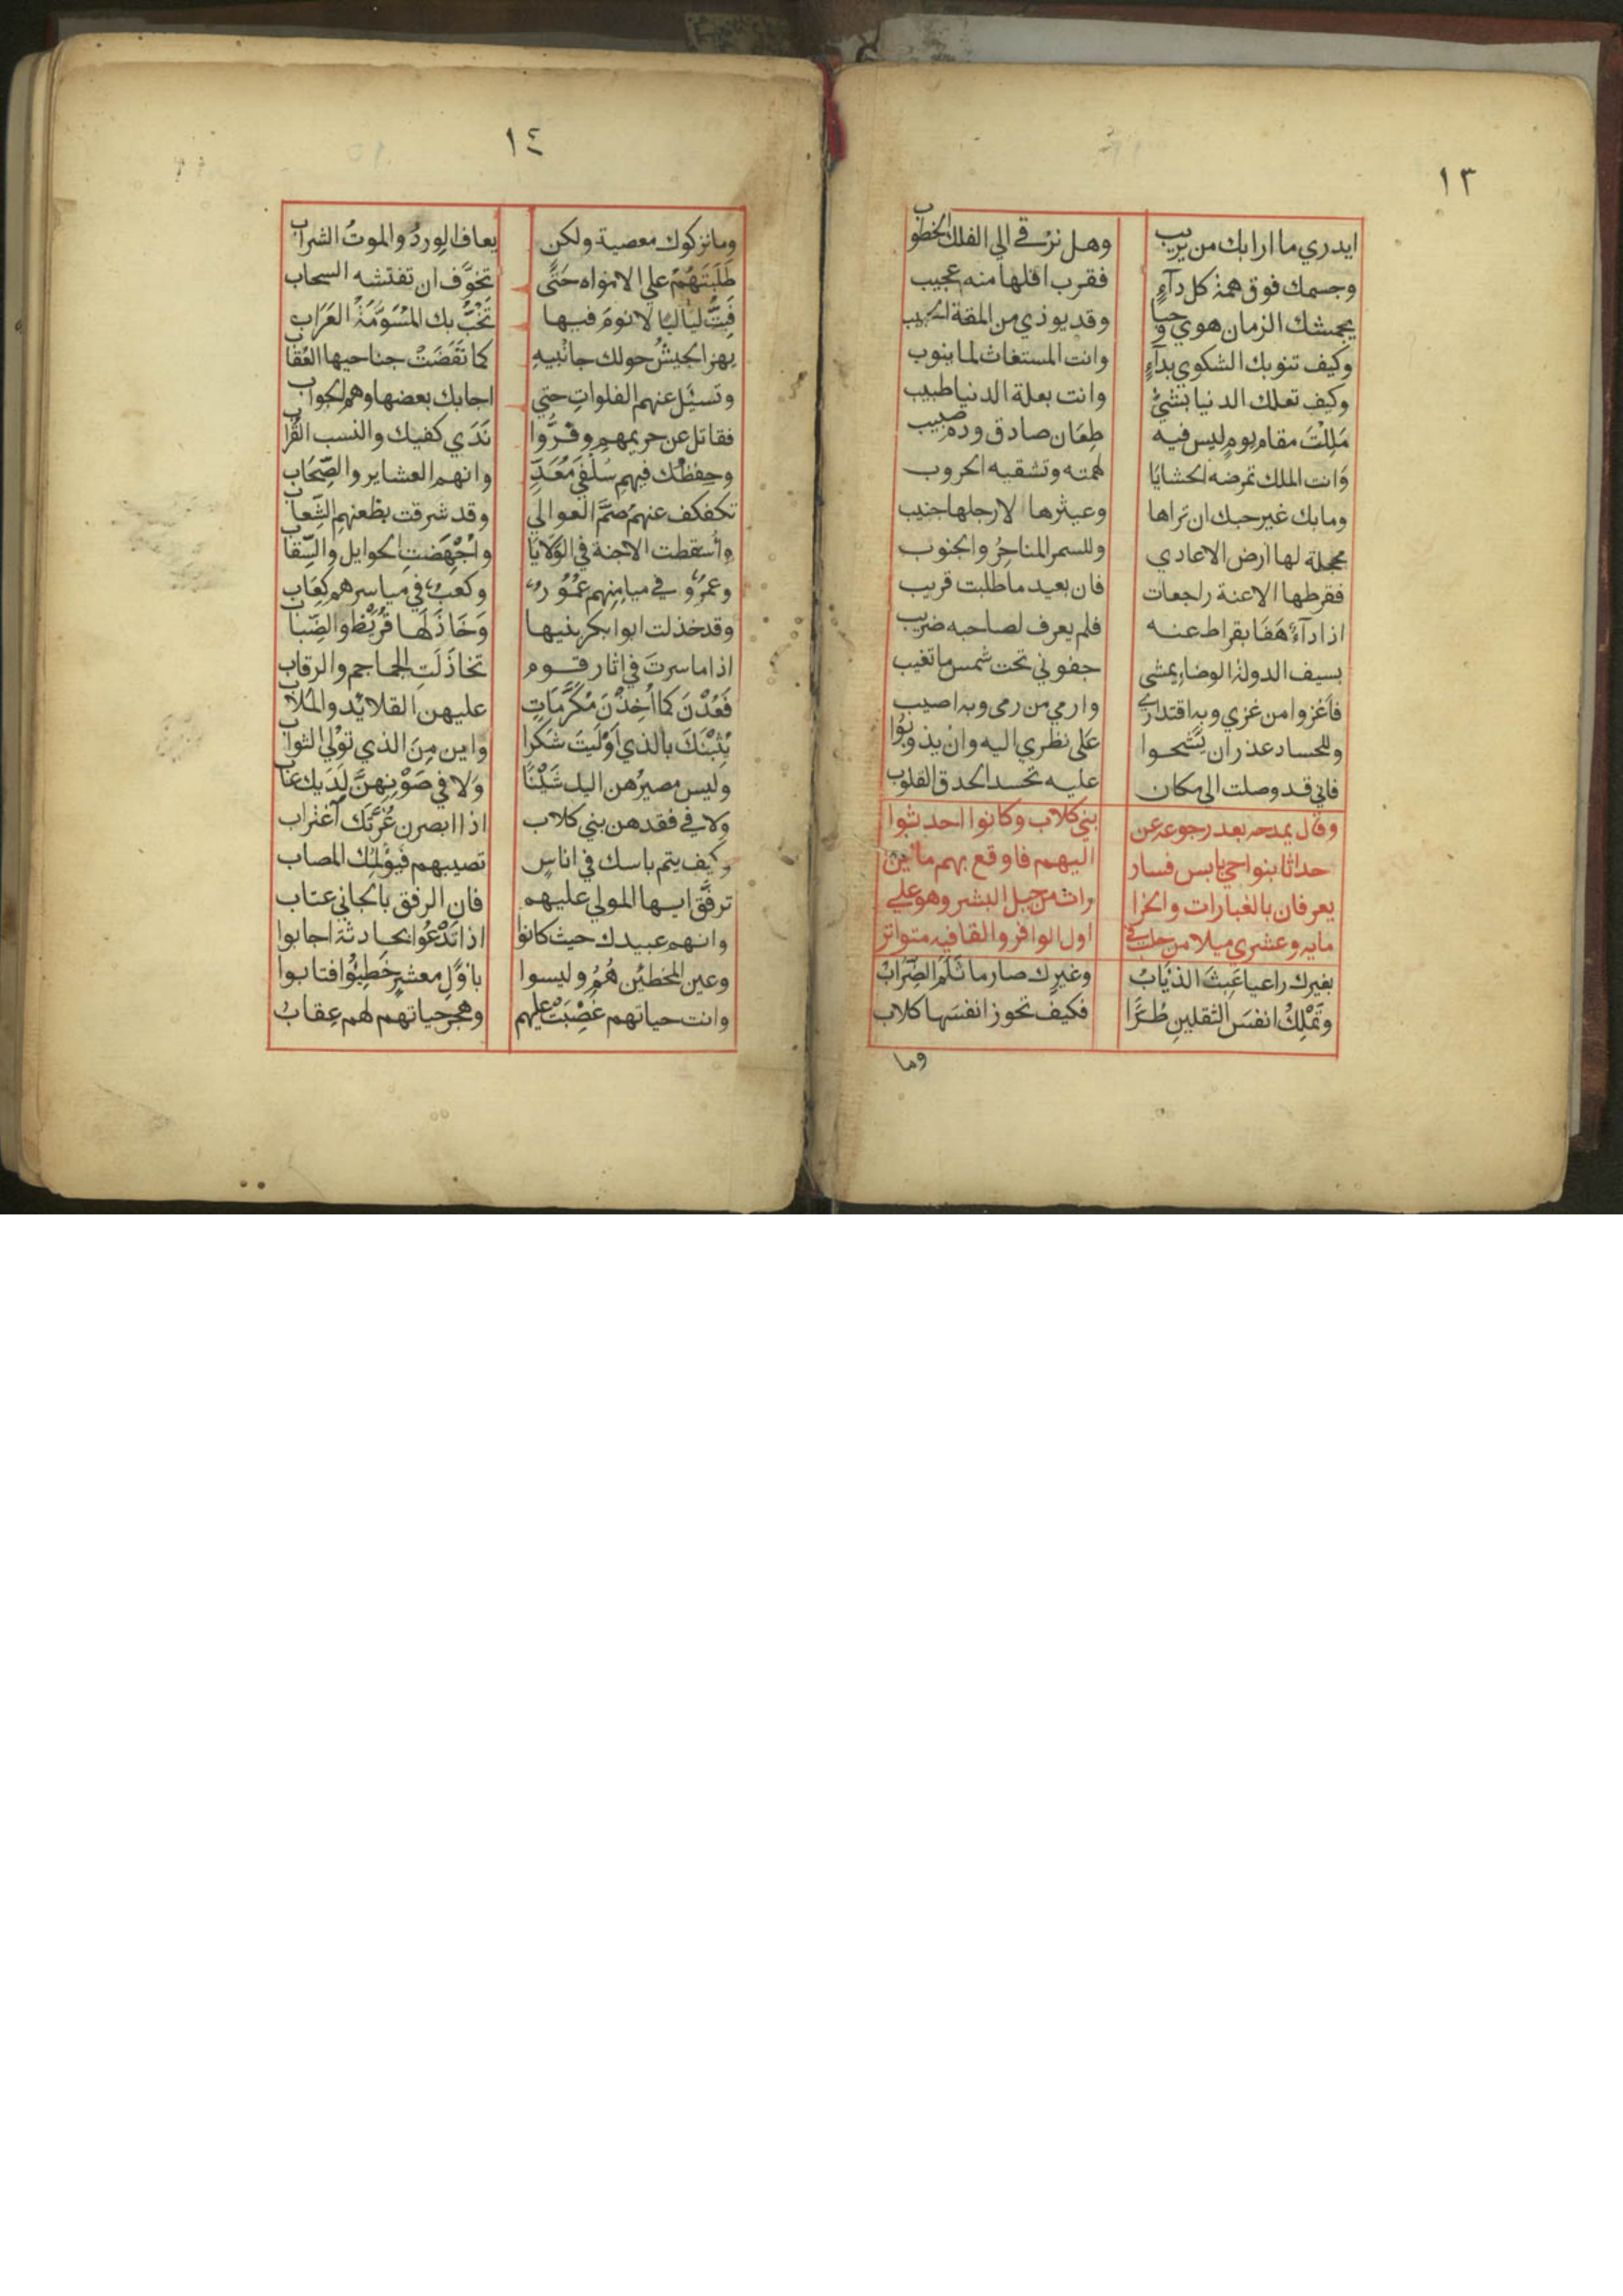 ١٣
ايدري ما ارابك من يريب وهل ترقي الي الفلك الخطوب
وجسمك فوق همة كل دآءٍ فقرب اقلها منه عجيب
يجمشك الزمان هوي وحبا وقد يوذي من المقة الحبيب
وكيف تنوبك الشكوي بدآءٍ وانت المستغاث لما ينوب
وكيف تعلك الدنيا بشئٍ وانت بعلة الدنيا طبيب
مَلِلْتَ مقام يومٍ ليس فيه طِعَان صادق ودم صبيب
وَانت الملك تمرضه الحشايَا لهمته وتشفيه الحروب
وما بك غير حبك ان تراها وعيثرها لارجلها جنيب
مجلحة لها ارض الاعادي وللسمر المناحِرُ والجنوب
فقرطها الاعنة راجعات فان بعيد ما طلبت قريب
اذا دآءٌ هَفَا بقراط عنه فلم يعرف لصاحبه ضريب
بسيف الدولة الوضاء يمشي جفوني تحت شمس ما تغيب
فاغزوا من غزي وبه اقتداري وارمي من رمى وبه اصيب
وللحساد عذر ان يشحوا عَلى نظري اليه وان يذوبُوا
فاني قد وصلت الى مكان عليه تحسد الحدق القلوب
وقال يمدحه بعد رجوعه عن بني كلاب وكانوا احدثوا
حداثا بنواحي بابس فساد اليهم فاوقع بهم مائين
يعرفان بالغبارات والخرا راث من جبل البشر وهو علي
مايه وعشري ميلا من حلب في اول الوافر والقافيه متواتر
بغيرك راعيا عَبِثَ الذيَابُ وغيرك صارما ثَلَمَ الضِّرَابُ
وتَمْلِكُ انفسَ الثقلينِ طُرًّا فكيف تحوز انفسَها كلاب
وما
١٤
وما تركوك معصية ولكن يعاف الوِردُ والموتُ الشراب
طَلَبْتَهُمُ علي الامواه حَتّي تخوَّف ان تفتشه السحاب
فَبِتَّ لياليًا لا نومَ فيها تَخُبُّ بك المُسَوَّمَةُ العَرَاب
يهز الجيشُ حولك جانبيهِ كما نَفَضَتْ جناحيها العُقاب
وتسئل عنهم الفلواتِ حتي اجابك بعضها وهم الجواب
فقاتل عن حريمهم وفرُّوا نَدَي كفيك والنسب القُراب
وحِفظُك فيهم سُلَفَي مَعَدٍّ وانهم العشاير والصِّحَاب
تكفكف عنهم صُمَّ العوالي وقد شرقت بظعنهم الشِّعاب
وأسقطت الاجنة في الوَلايَا واُجْهِضَتِ الحوايل والسِّقاب
وعمرٌو في ميامنِهم عمُوُرٌ وكعبٌ في مياسرهم كِعَاب
وقد خذلت ابوا بكر بنيها وَخَاذَلَها قُرَيْظ والضِّبَاب
اذا ما سرتَ في اثار قوم تخاذَلَتِ الجماجم والرقاب
فَعُدْنَ كما اُخِذْنَ مُكَرَّمَاتٍ عليهن القلائد والمَلاب
يُثِبْنَكَ بالذي اَوْلَيْتَ شُكرا واين مِنَ الذي تُوْلي الثواب
وليس مصيرُهن اليك شَيْنًا وَلا في صَوْنِهِنَّ لَدَيك عَاب
ولا في فقدهن بني كلاب اذا ابصرن غُرَّتَك اغتراب
وكيف يتم باسك في اناسٍ تصيبهم فيُؤْلِمُك المصاب
ترفَّق ايها المولي عليهم فان الرفق بالجاني عتاب
وانهم عبيدك حيث كانوا اذا تَدْعُوا بحادثة اجابوا
وعين المخطئين هُمُ وليسوا باوّلِ معشرٍ خَطِئُوا فتابوا
وانت حياتهم غَضِبَتْ عليهم وهجر حياتهم لهم عِقابُ